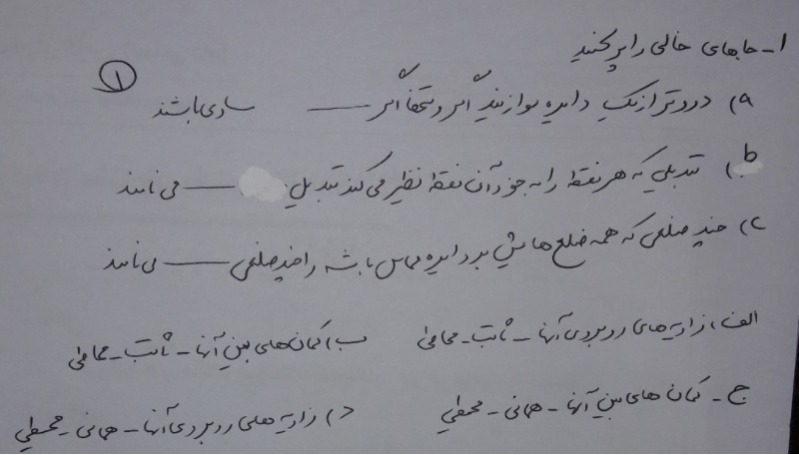 ۱- جاهای خالی را پر کنید
۱
a) دو وتر از یک دایره موازیند اگر و تنها اگر ____ مساوی باشند
b) تبدیلی که هر نقطه را به خود آن نقطه نظیر می کند تبدیل ____ می نامند
c) چند ضلعی که همه ضلع هایش بر دایره مماس باشد را چند ضلعی ____ می نامند
الف) زاویه های روبروی آنها - ثابت - محاطی ب) کمان های بین آنها - ثابت - محاطی
ج - کمان های بین آنها - همانی - محیطی د) زاویه های روبروی آنها - همانی - محیطی